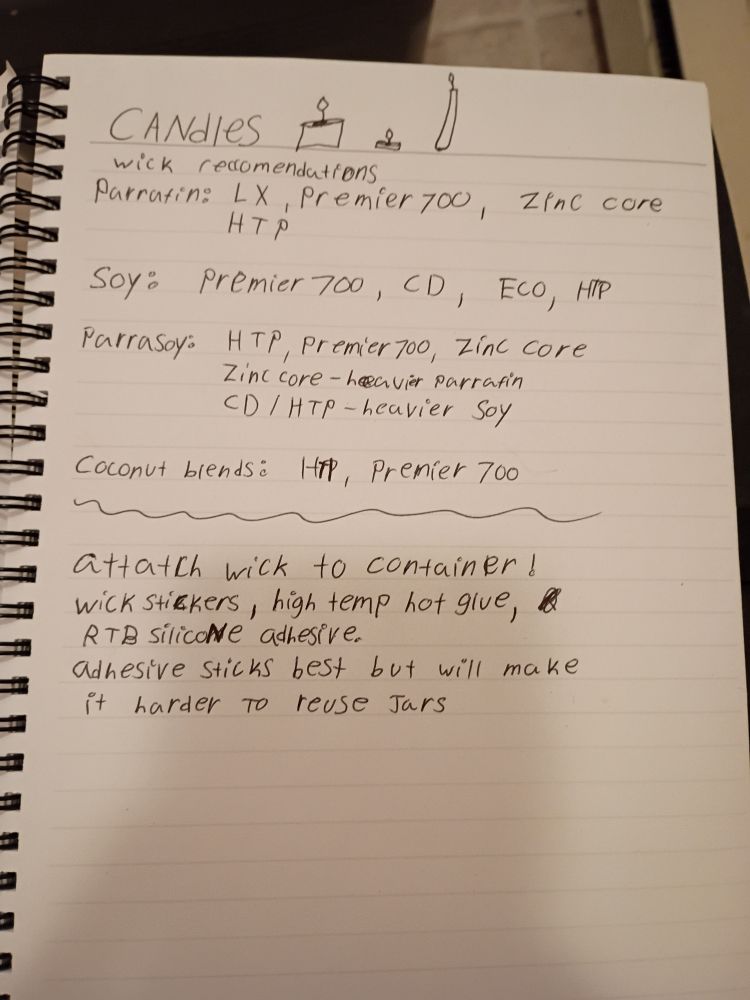 CANdlES
wick reccomendations
Parrafin: LX, Premier 700, Zinc core
HTP
Soy: Premier 700, CD, ECO, HTP
Parrasoy: HTP, Premier 700, Zinc core
Zinc core - heavier parrafin
CD / HTP - heavier Soy
Coconut blends: HTP, Premier 700
attatch wick to container!
wick stickers, high temp hot glue,
RTB silicone adhesive.
adhesive sticks best but will make
it harder to reuse Jars